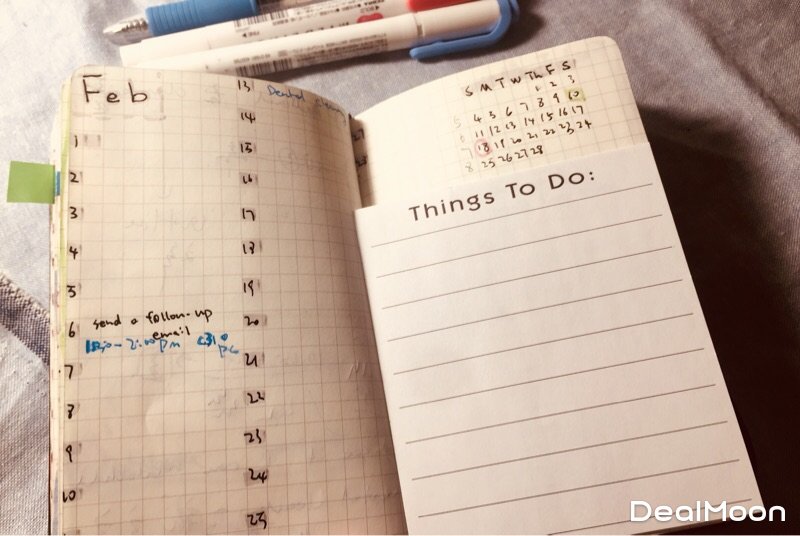 Feb
1
2
3
4
5
6 send a follow-up
email
2:00 pm
7
8
9
10
13 Dental
14
15
16
17
18
19
20
21
22
23
24
25
27
28
S M T W Th F S
1 2 3
5 4 5 6 7 8 9 10
6 11 12 13 14 15 16 17
7 18 19 20 21 22 23 24
8 25 26 27 28
Things To Do:
DealMoon